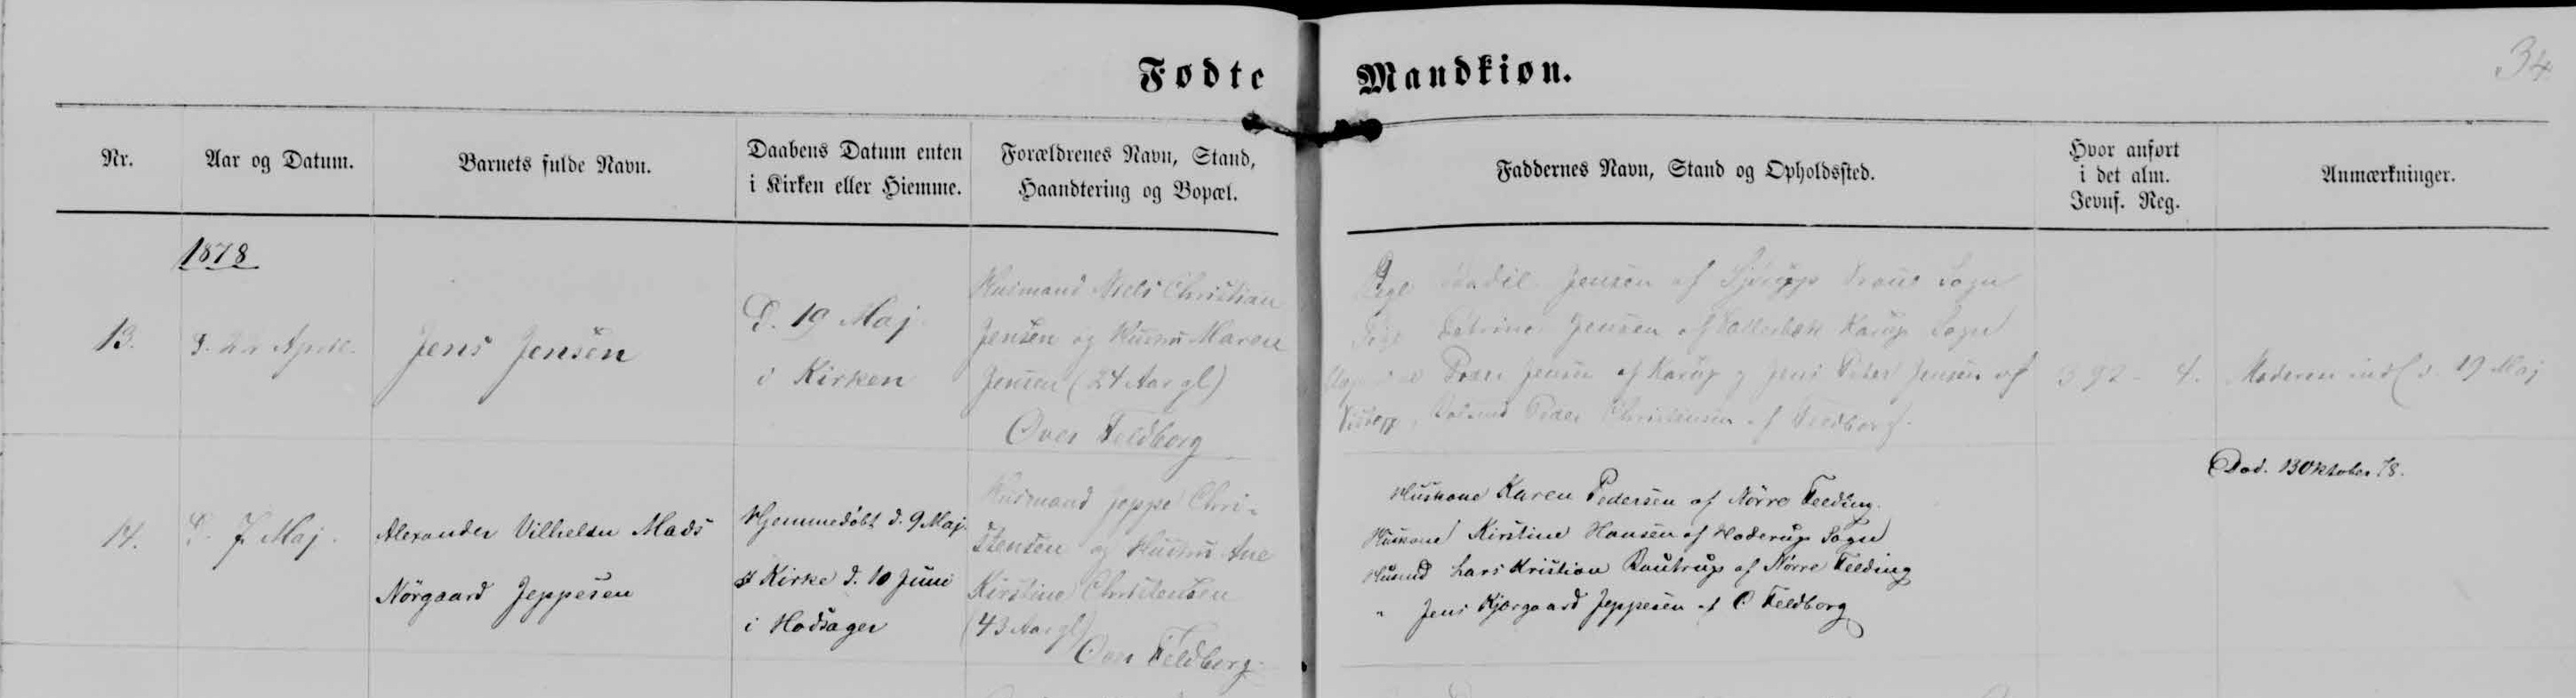 Fødte Mandkiøn.
34
Nr.
Aar og Datum.
Barnets fulde Navn.
Daabens Datum enten
i Kirken eller Hiemme.
Forældrenes Navn, Stand,
Haandtering og Bopæl.
Faddernes Navn, Stand og Opholdssted.
Hvor anført
i det alm.
Jevnf. Reg.
Anmærkninger.
1878
13.
D. 22 April.
Jens Jensen
D. 19 Maj
i Kirken
Husmand Niels Christian
Jensen og Hustru Maren
Jensen (24 Aar gl)
Over Feldborg
Pige Bodil Jensen af Sjørup Sogn
Pige Petrine Jensen af Karup Sogn
Peder Jensen af Karup og Jens Peter Jensen af
Peder Christensen af Feldborg.
392 - 4.
Moderen indl d. 19 Maj
14.
D. 7 Maj.
Alexander Vilhelm Mads
Nörgaard Jeppesen
Hjemmedøbt d. 9 Maj.
i Kirke d. 10 Juni
i Hodsager
Husmand Jeppe Chri-
stensen og Hustru Ane
Kirstine Christensen
(43 Aar gl)
Over Feldborg.
Huskone Karen Pedersen af Nörre Feeding.
Huskone Kirstine Hansen af Haderup Sogn
Husmd Lars Kristian Rautrup af Nörre Feeding
" Jens Kjærgaard Jeppesen af O Feldborg
Död. 13 Oktober 78.